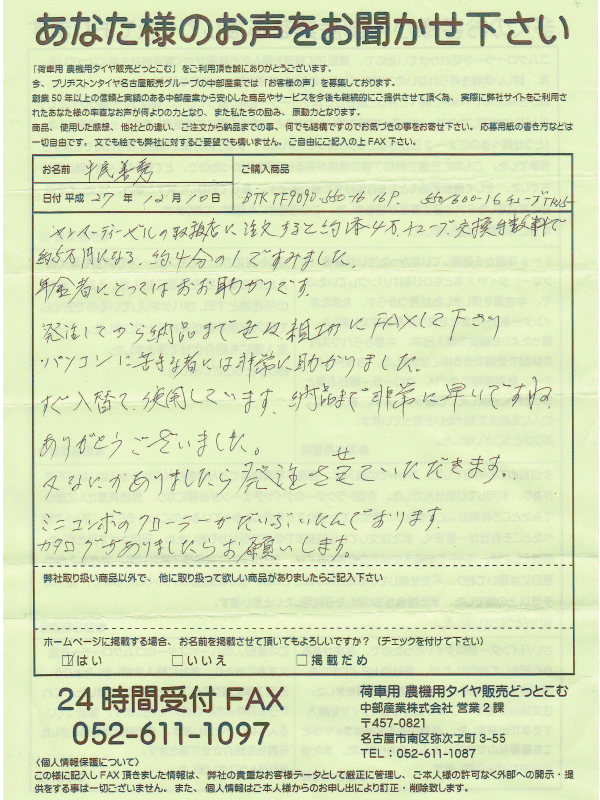 あなた様のお声をお聞かせ下さい
「荷車用 農機用タイヤ販売どっとこむ」をご利用頂き誠にありがとうございます。
今、ブリヂストンタイヤ名古屋販売グループの中部産業では「お客様の声」を募集しております。
創業50年以上の信頼と実績のある中部産業から安心した商品やサービスを今後も継続的にご提供させて頂く為、実際に弊社サイトをご利用さ
れたあなた様の率直なお声が何よりの力となり、また私たちの励み、原動力となります。
商品、使用した感想、他社との違い、ご注文から納品までの事、何でも結構ですのでお気づきの事をお寄せ下さい。応募用紙の書き方などは
一切自由です。文でも絵でも弊社に対するご要望でも構いません。ご自由にご記入の上FAX下さい。
お名前 ご購入商品
日付 平成 27 年 12 月 10 日 550-16 550/600-16 チューブ
の取扱店に注文すると約1本4万、チューブ交換手数料で
約5万円になる、約4分の1ですみました。
年金者にとってはおお助かりです。
発注してから納品まで 親切にFAXして下さり
パソコンに苦手な者には非常に助かりました。
すぐ入替て、使用しています、納品まで非常に早いですね
ありがとうございました。
又なにかありましたら発注させていただきます。
ミニコンボのクローラーがだいぶいたんでおります。
カタログがありましたらお願いします。
弊社取り扱い商品以外で、他に取り扱って欲しい商品がありましたらご記入下さい
ホームページに掲載する場合、お名前を掲載させて頂いてもよろしいですか？（チェックを付けて下さい）
☑はい □いいえ □掲載だめ
24時間受付 FAX
052-611-1097
荷車用 農機用タイヤ販売どっとこむ
中部産業株式会社 営業2課
〒457-0821
名古屋市南区弥次ヱ町 3-55
TEL：052-611-1087
〈個人情報保護について〉
この様に記入しFAX頂きました情報は、弊社の貴重なお客様データとして厳正に管理し、ご本人様の許可なく外部への開示・提
供をする事は一切ございません。また、個人情報はご本人様からのお申し出により訂正・削除致します。